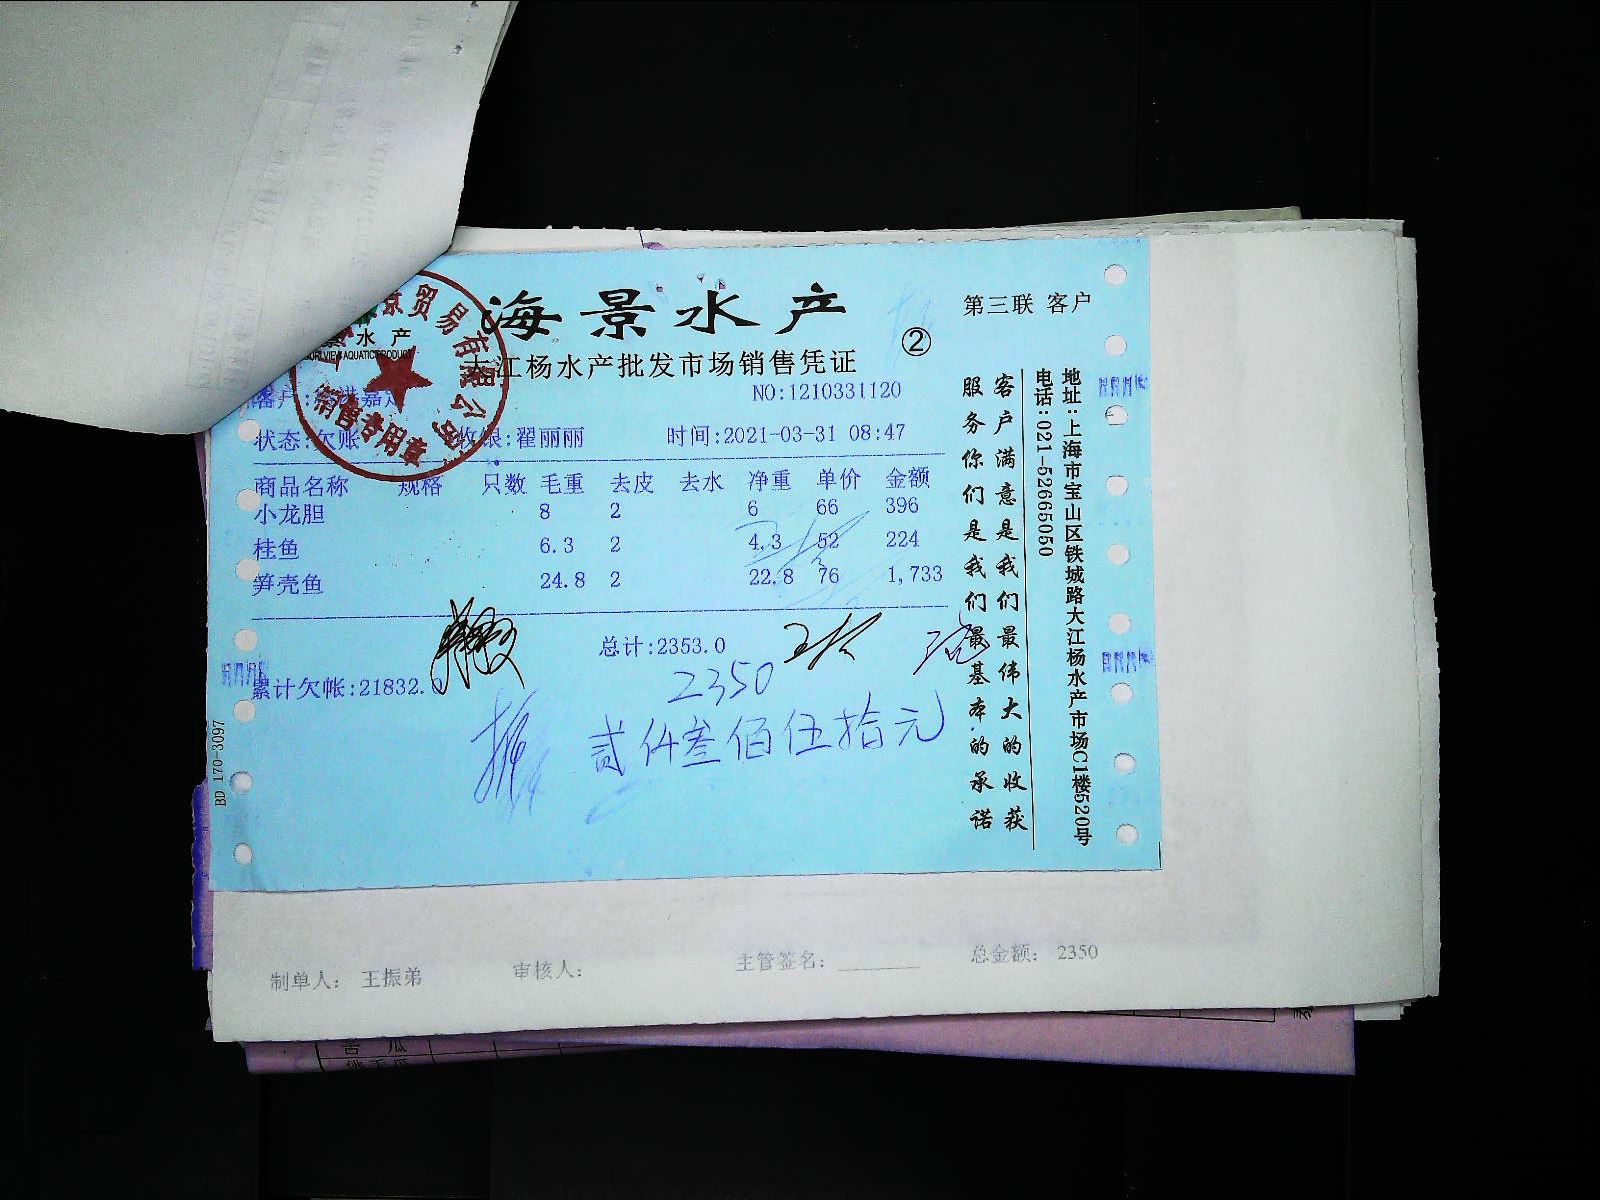 海景水产
大江杨水产批发市场销售凭证
②
第三联 客户
水产
贸易有限公司
销售专用章
NO:1210331120
状态:欠账 收银:翟丽丽 时间:2021-03-31 08:47
商品名称 规格 只数 毛重 去皮 去水 净重 单价 金额
小龙胆 8 2 6 66 396
桂鱼 6.3 2 4.3 52 224
笋壳鱼 24.8 2 22.8 76 1,733
总计:2353.0
累计欠帐:21832.
2350
贰仟叁佰伍拾元
客户满意是我们最伟大的收获
服务你们是我们最基本的承诺
地址:上海市宝山区铁城路大江杨水产市场C1楼520号
电话:021-52665050
BD 170-3097
制单人: 王振弟 审核人: 主管签名: 总金额: 2350
苦瓜